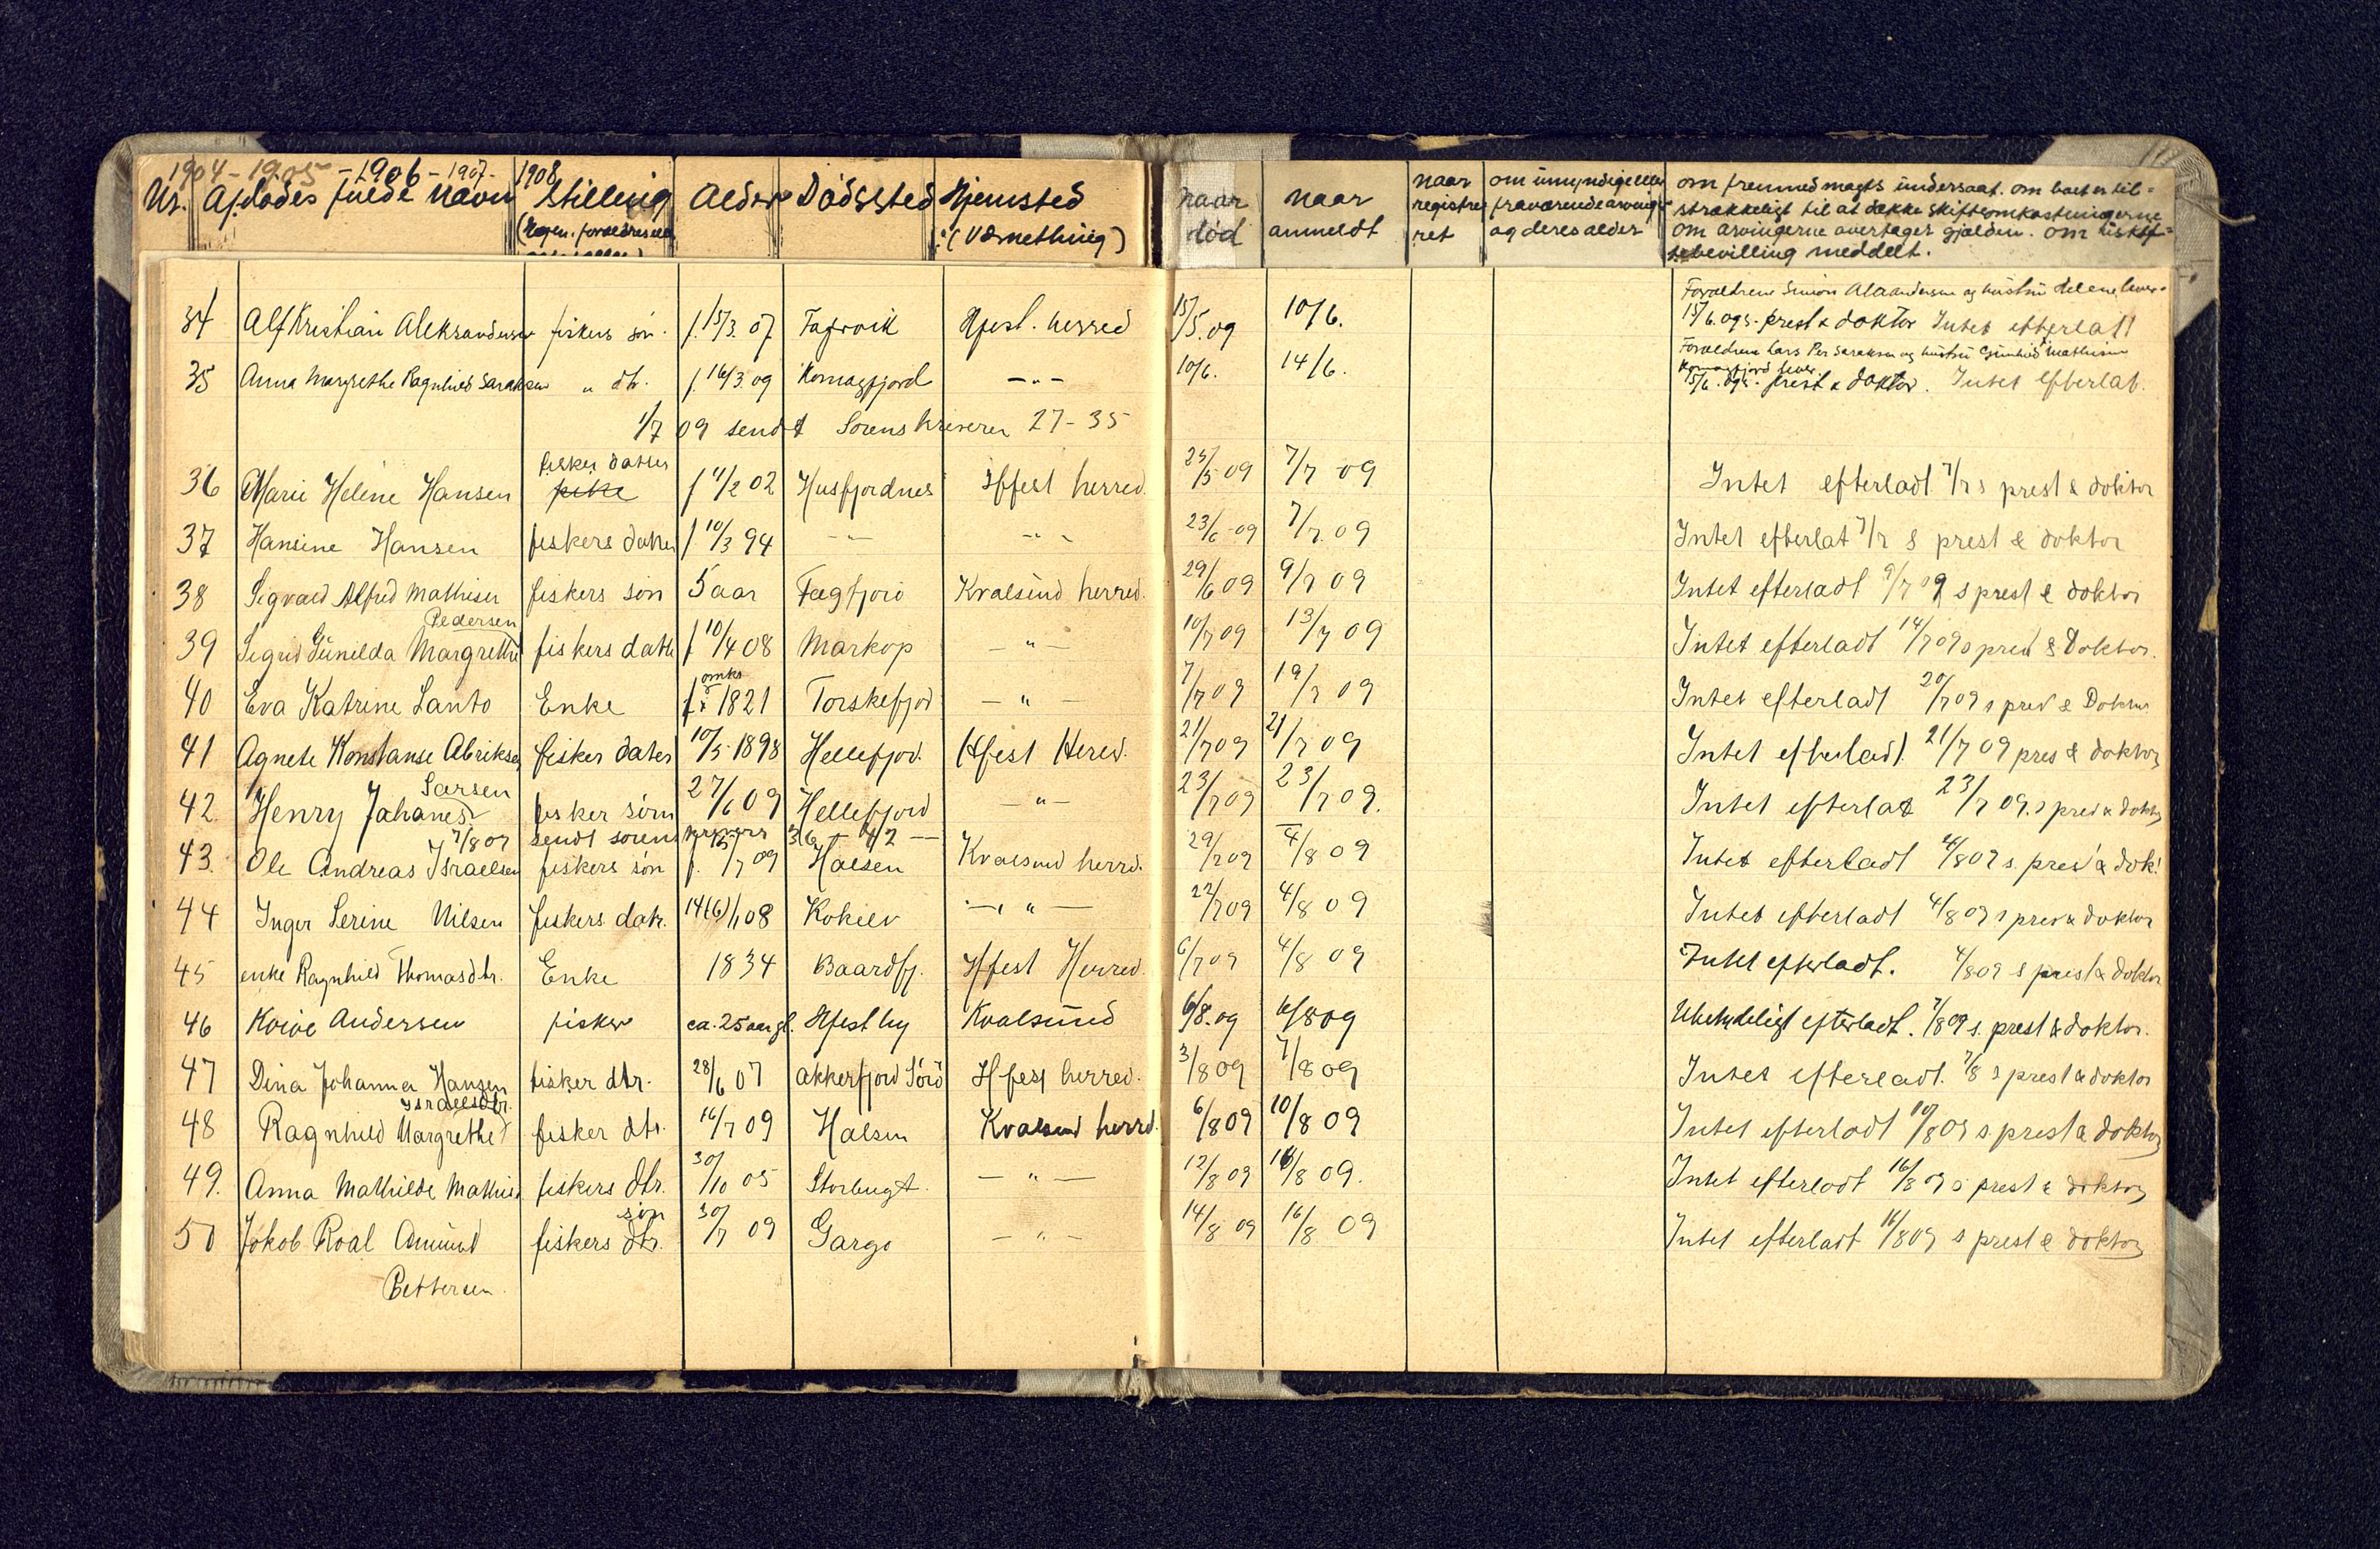 1904-1905-1906-1907-1908
Nr. Afdødes fulde Navn Stilling Alder Dødssted Hjemsted naar død naar anmeldt naar registreret om umyndige eller fraværende arvinger og deres alder om fremmed magts undersaat. om boet er tilstrækkeligt til at dække skifteomkostningerne om arvingerne overtager gjælden. om uskiftebevilling meddelt.
Forældrene Simon Alexandersen og hustru Helene lever.
34 Alf Kristian Aleksandersen fiskers søn. f. 15/3 07 Tafvvik Hfest. herred 15/5.09 10/6. 15/6.09 s. prest & doktor Intet efterlatt
Forældrene Lars Per Saraksen og hustru Gunhild Mathisen
Komagfjord lever.
35 Anna Margrethe Ragnhild Saraksen " dtr. f. 16/3 09 Komagfjord -"- 10/6. 14/6. 15/6.09 s. prest & doktor. Intet efterlat.
1/7 09 sendt Sorenskriveren 27-35
fisker datter
36 Marie Helene Hansen pike f 4/2 02 Husfjordnes Hfest herred. 25/5 09 7/7 09 Intet efterladt 7/7 s prest & doktor
37 Hansine Hansen fiskers datter f 10/3 94 -"- -"- 23/6 09 7/7 09 Intet efterlat 7/7 s prest & doktor
38 Sigvald Alfred Mathisen fiskers søn 5 aar Fægfjord Kvalsund herred. 29/6 09 9/7 09 Intet efterladt 9/7 09 s prest & doktor
Pedersen
39 Sigrid Gunilda Margrethe fiskers datter f 10/4 08 Markop -"- 10/7 09 13/7 09 Intet efterladt 14/7 09 s prest & Doktor.
omkr
40 Eva Katrine Lanto Enke f. 1821 Torskefjord -"- 7/7 09 19/7 09 Intet efterladt 20/7 09 s prest & Doktor
41 Agnete Konstanse Abriksen fisker dater 10/5 1898 Hellefjord. Hfest Hered. 21/7 09 21/7 09 Intet efterladt 21/7 09 pres & doktor
Larsen
42 Henry Johanes fisker sørn 27/6 09 Hellefjord -"- 23/7 09 23/7 09. Intet efterlat 23/7 09. s prest & doktor
7/8 09 sendt sorenskrivers 36 - 42 -
43. Ole Andreas Israelsen fiskers søn f. 15/7 09 Halsen Kvalsund herrd. 29/7 09 4/8 09 Intet efterladt 4/8 09 s. prest & dok.
44 Inger Serine Nilsen fiskers datr. 14(6)/1 08 Kokelv -"- 22/7 09 4/8 09 Intet efterladt 4/8 09 s prest & doktor
45 enke Ragnhild Thomasdtr. Enke 1834 Baardfj. Hfest Herred. 6/7 09 4/8 09 Intet efterladt. 4/8 09 s prest & doktor
46 Koive Andersen fisker ca. 25 aar gl. Hfest by Kvalsund 6/8.09 6/8 09 Ubetydeligt efterladt. 7/8 09 s. prest & doktor.
47 Dina Johanna Hansen fisker dtr. 28/6 07 Akkerfjord Sørø Hfest herred. 3/8 09 7/8 09 Intet efterladt. 7/8 s prest & doktor
Israelsdtr.
48 Ragnhild Margrethe fisker dtr. 16/7 09 Halsen Kvalsund herrd. 6/8 09 10/8 09 Intet efterladt 10/8 09 s. prest & doktor
49. Anna Mathilde Mathis fiskers dtr. 30/10 05 Storbugt. -"- 12/8 09 16/8 09. Intet efterladt 16/8 09 s prest & doktor
søn
50 Jokob Roal Amund fiskers dtr. 30/7 09 Gargo -"- 14/8 09 16/8 09 Intet efterladt 16/8 09 s prest & doktor
Pettersen.